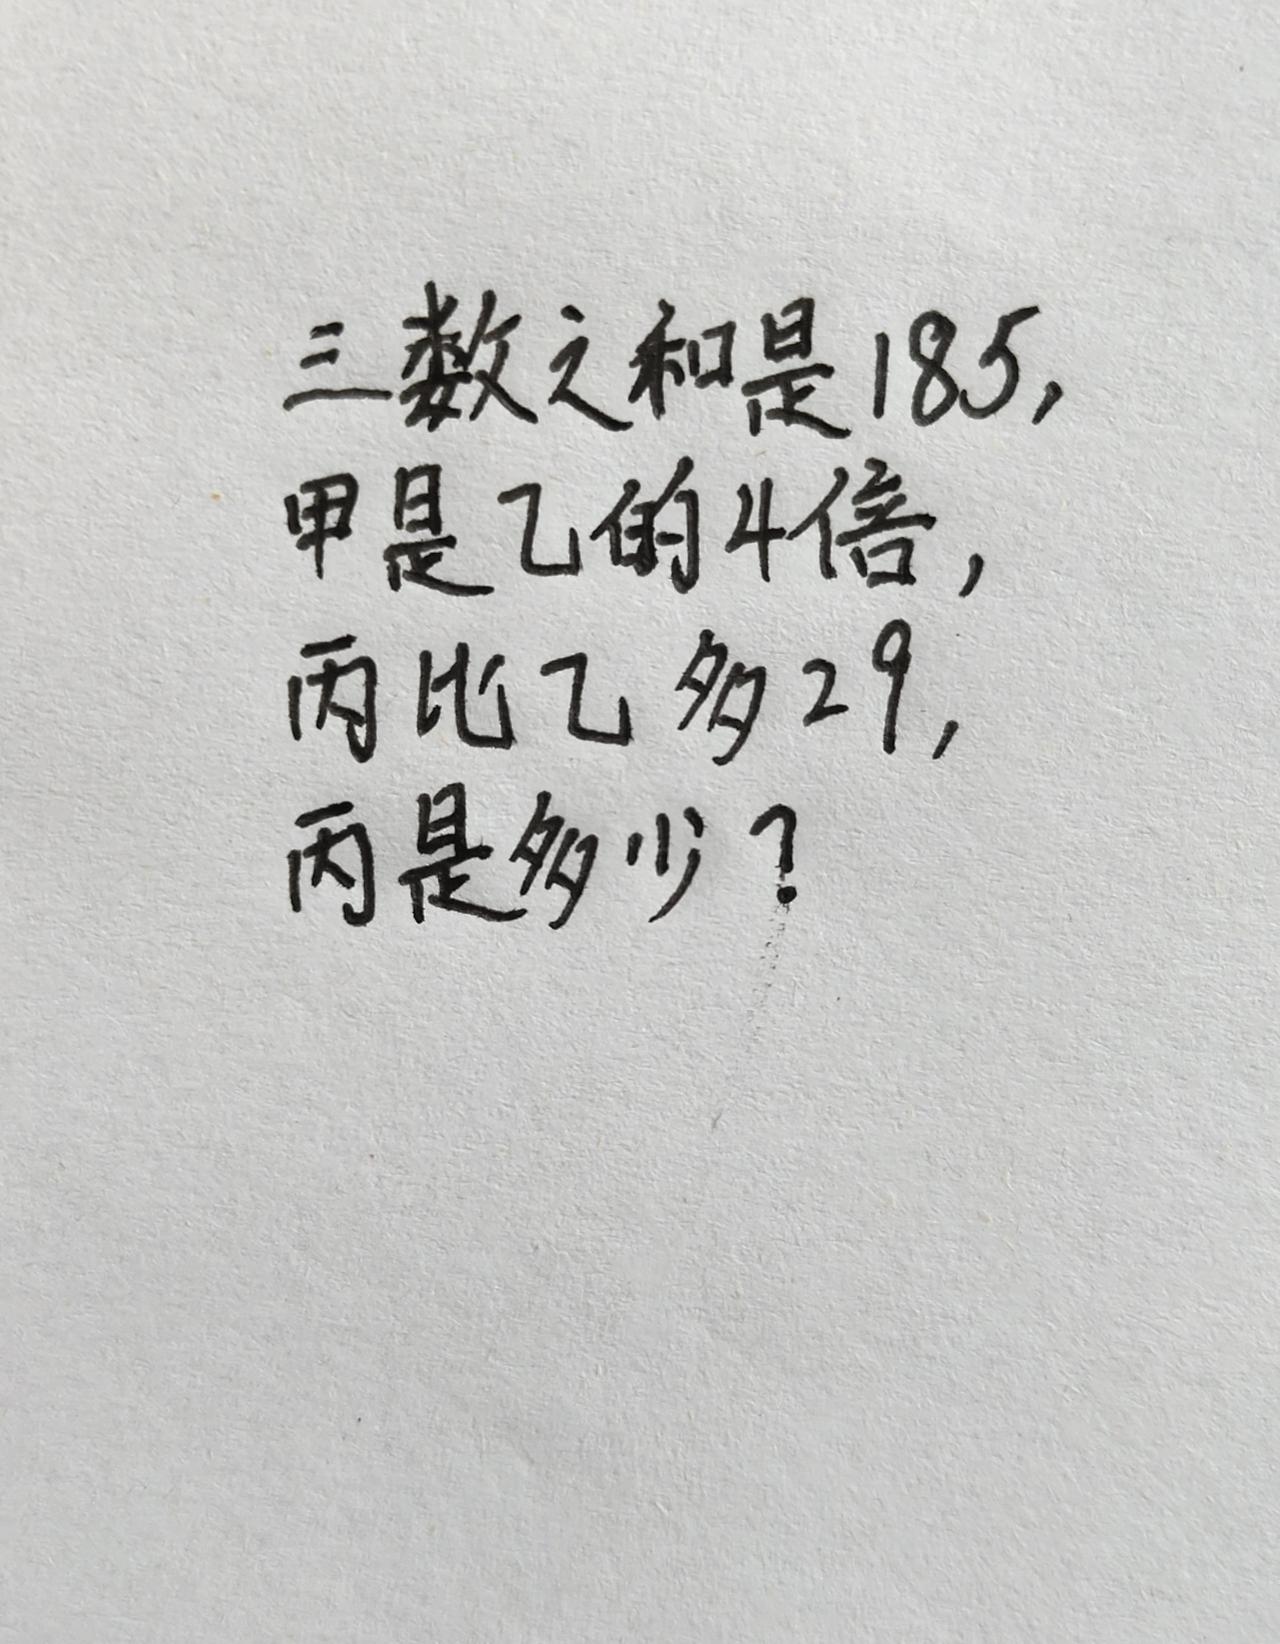 三数之和是185,
甲是乙的4倍,
丙比乙多29,
丙是多少?